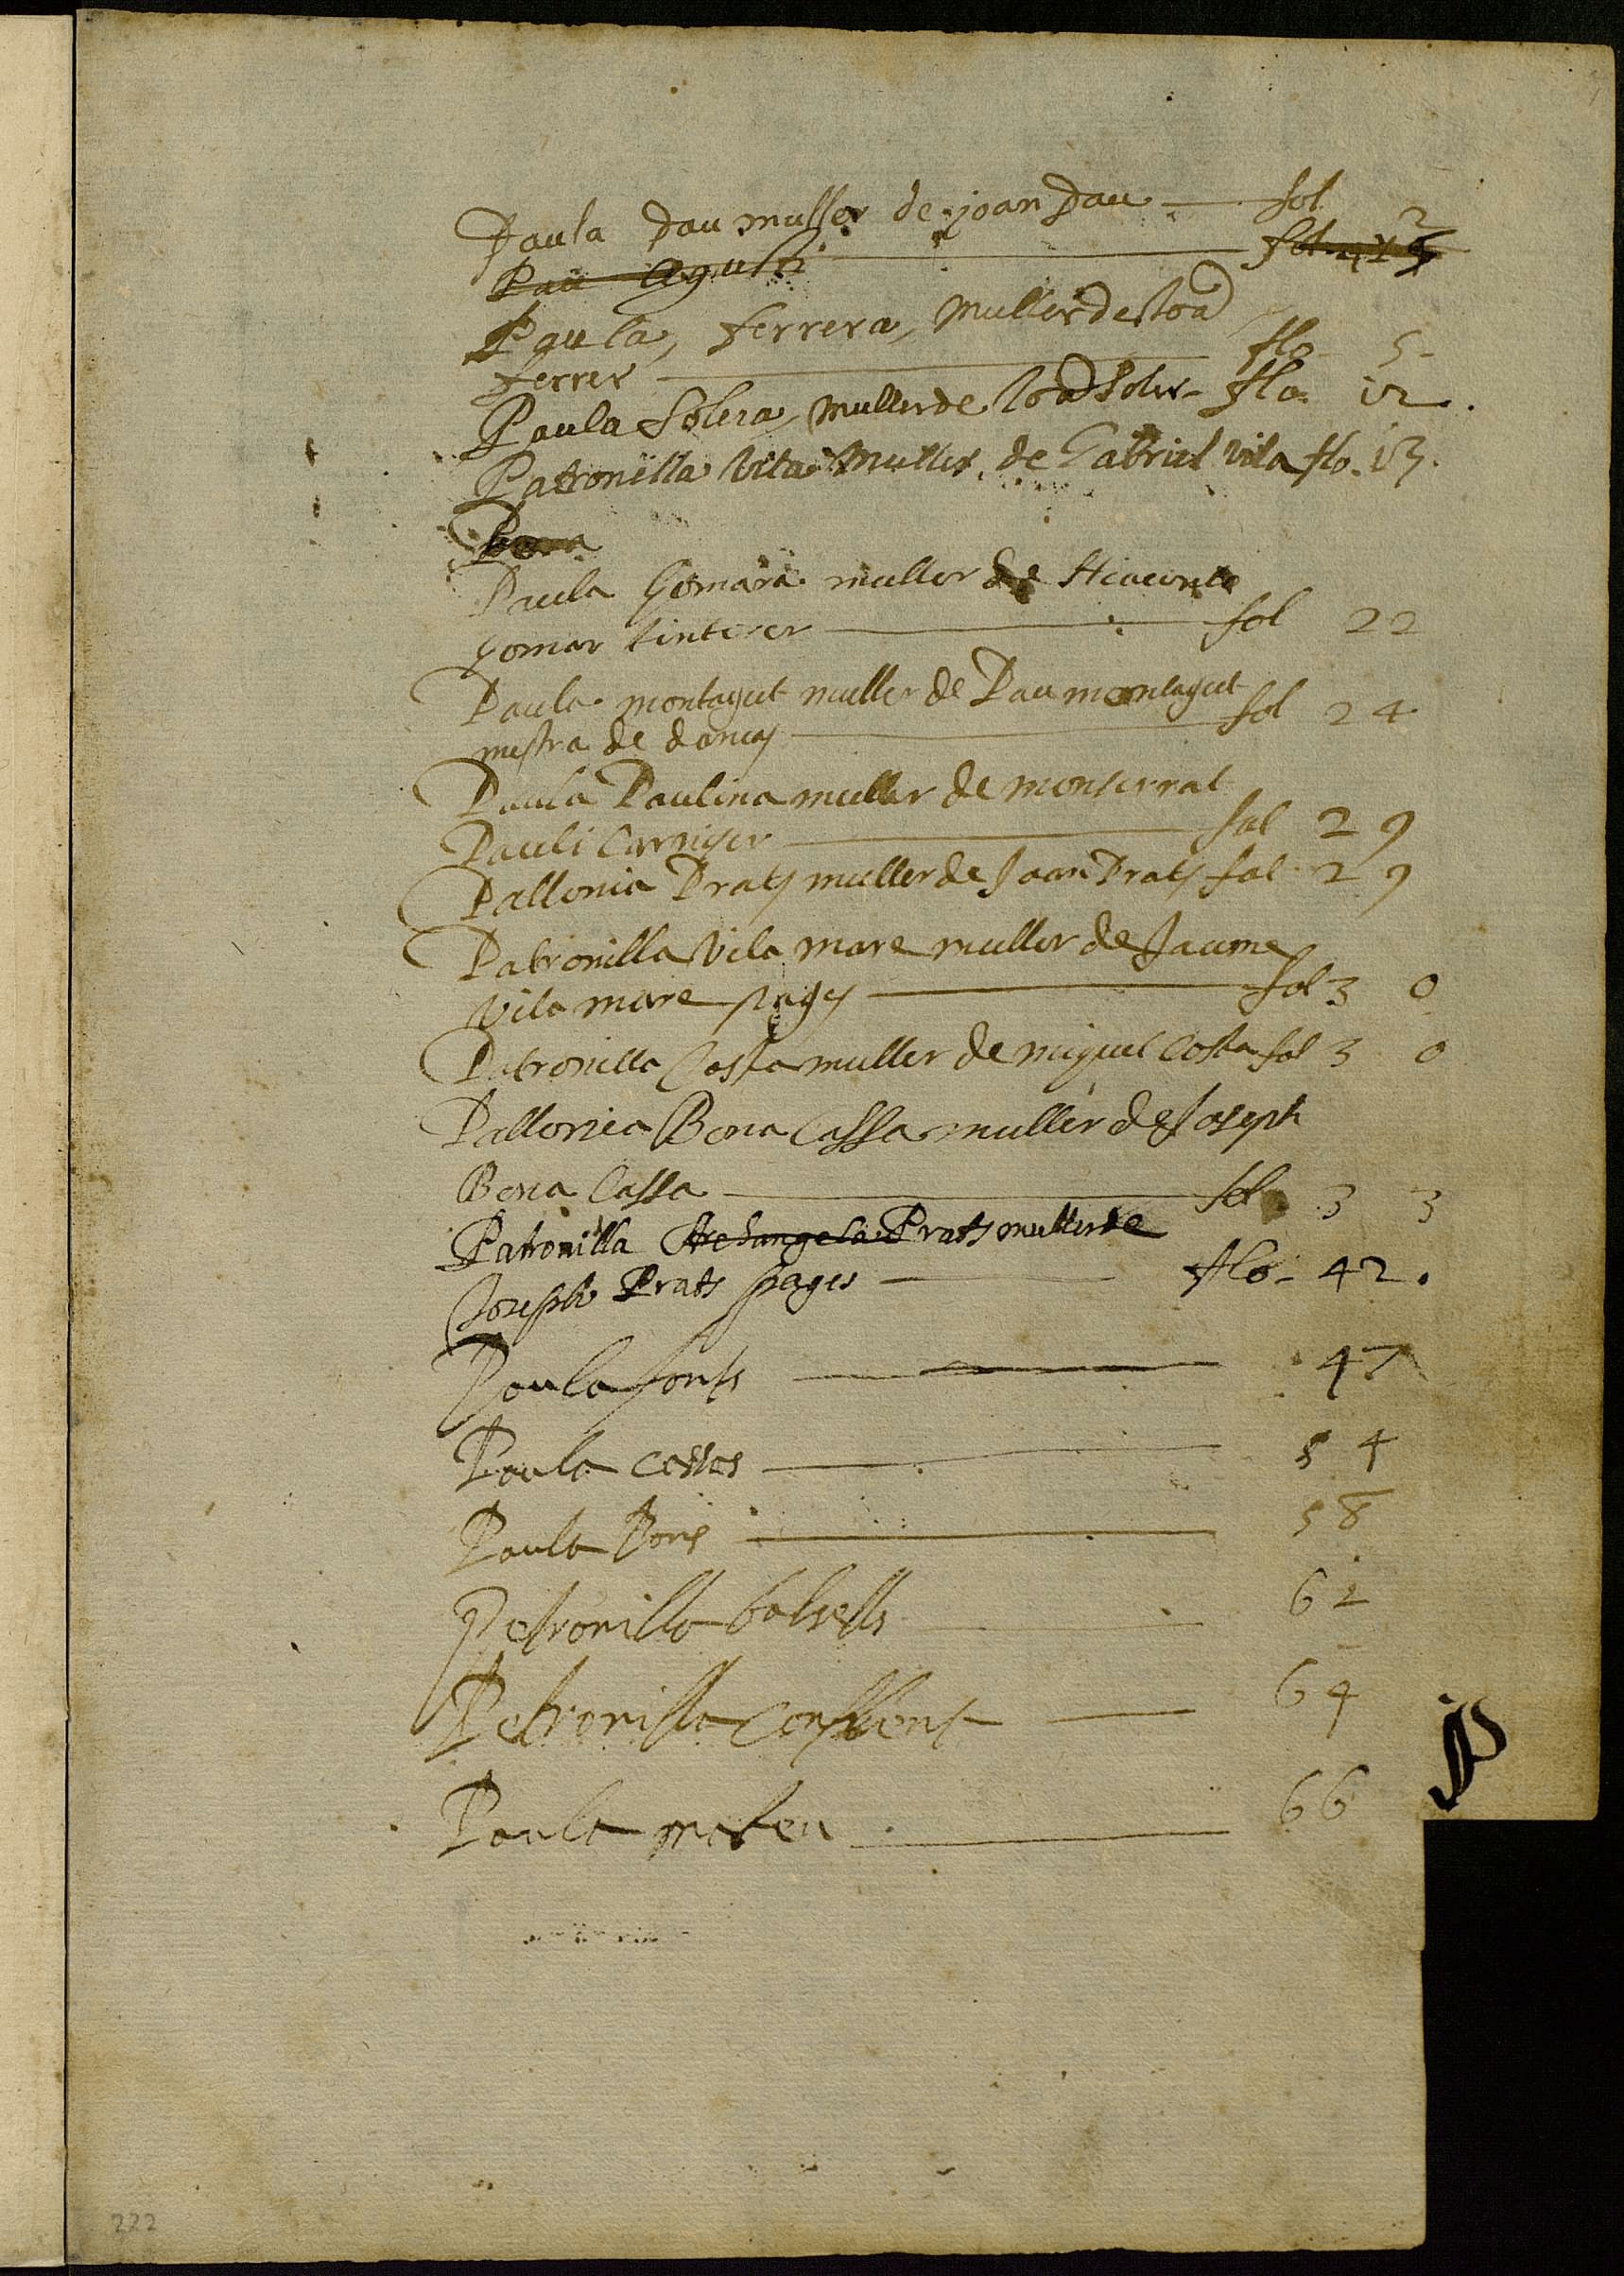 Paula Dau muller de joan Dau fol 2
Pau Agusti fol
Paula, ferrera, muller de Joā
ferrer flo 5
Paula Solera, muller de Joā Soler flo. 12.
Patronilla Vila Muller de Gabriel Vila flo. 13.
Paula Gomara muller de Hiacinto
Gomar tinterer fol 22
Paula montagut muller de Pau montagut
mestra de dances fol 24
Paula Paulina muller de monserrat
Pauli Carniser fol 29
Pallonia Prats muller de Joan Prats fol 29
Patronilla Vila mare muller de Jaume
Vila mare pages fol 30
Patronilla Costa muller de miquel Costa fol 30
Pallonia Bona Cassa muller de Joseph
Bona Cassa fol 33
Patronilla Archangela Prats muller de
Joseph Prats pages flo. 42.
Paula fonts 47
Paula 54
Paula Pons 58
Petronilla balsells 62
Petronilla Conflent 64
Paula mateu 66
P
222